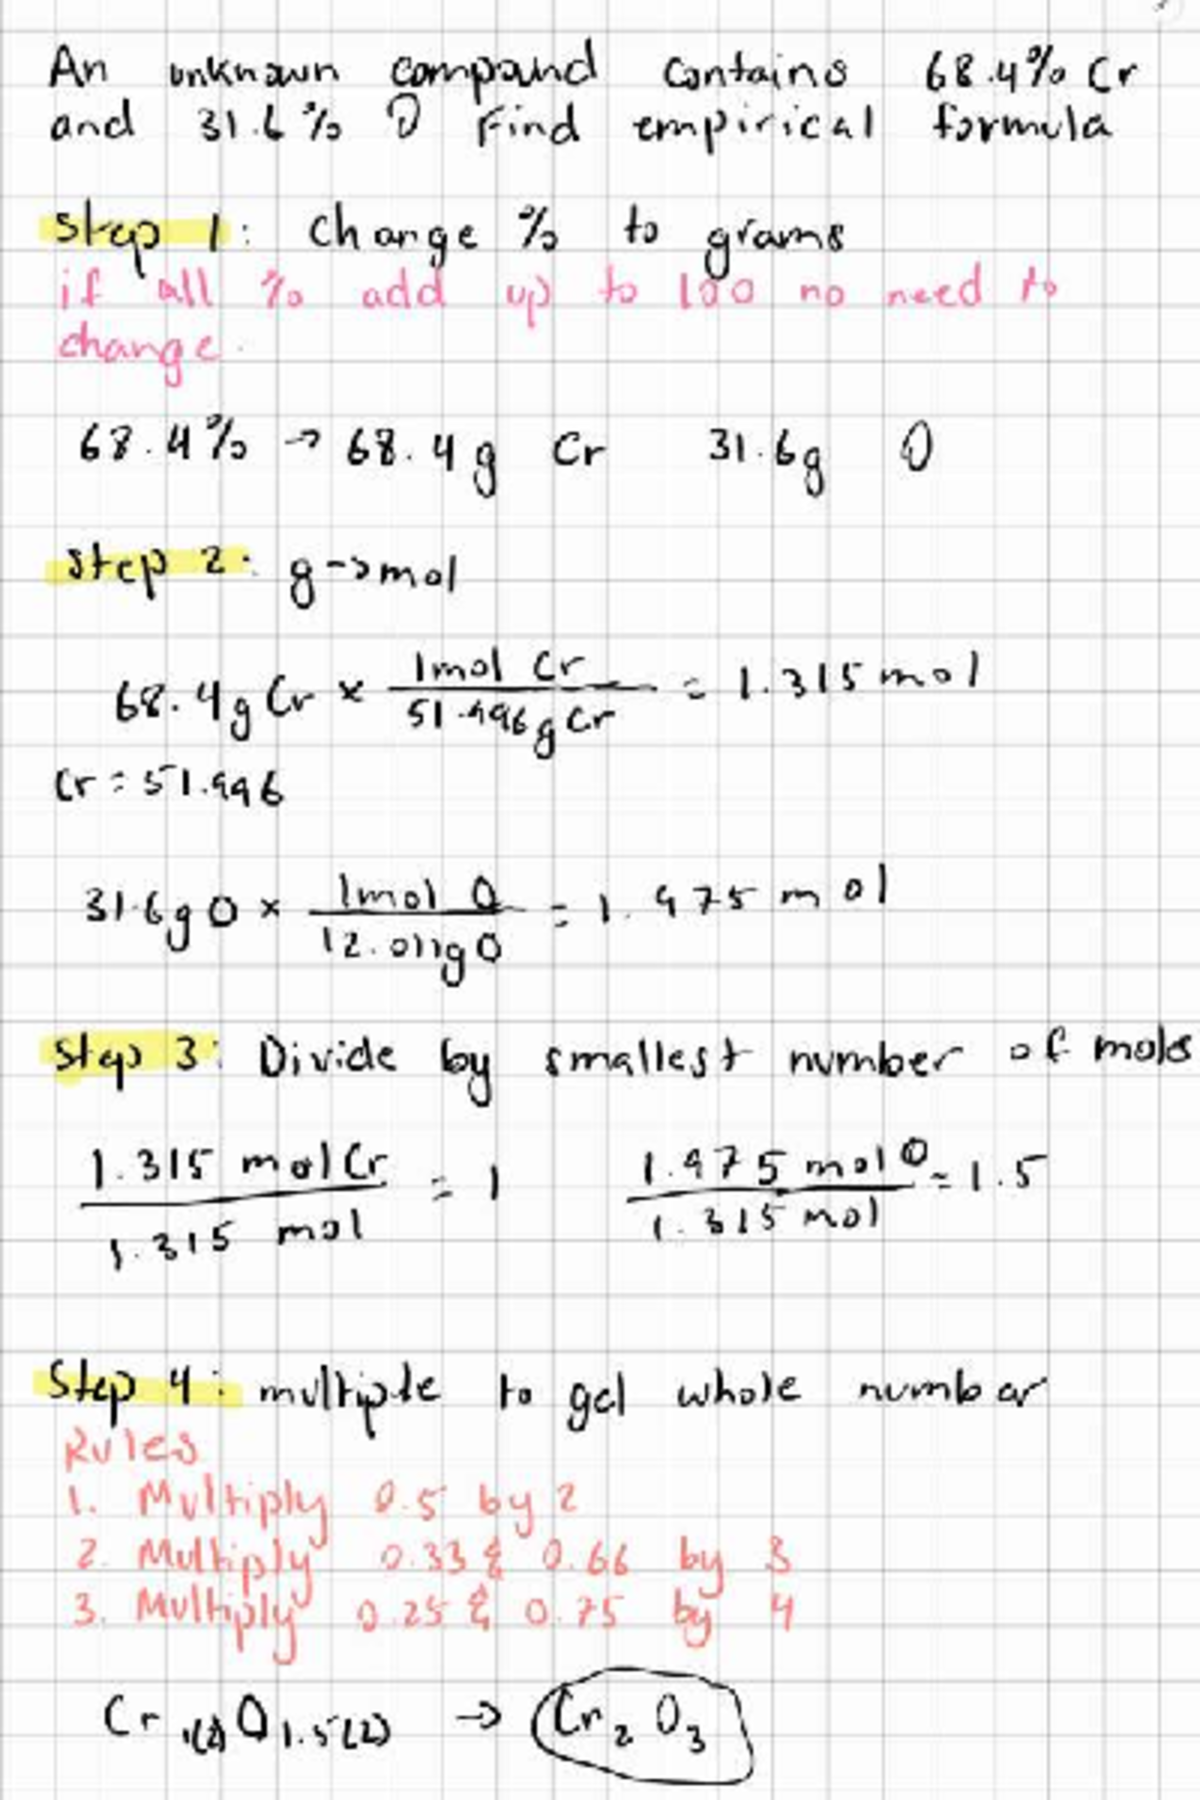 An unknown compound contains 68.4% Cr
and 31.6% O Find empirical formula
step 1: Change % to grams
if all % add up to 100 no need to
change.
68.4% → 68.4g Cr 31.6g O
step 2: g->mol
68.4g Cr × 1mol Cr / 51.996g Cr = 1.315 mol
Cr = 51.996
31.6g O × 1mol O / 12.011g O = 1.975 mol
step 3: Divide by smallest number of moles
1.315 mol Cr / 1.315 mol = 1 1.975 mol O / 1.315 mol = 1.5
Step 4: multiple to get whole number
Rules
1. Multiply 0.5 by 2
2. Multiply 0.33 & 0.66 by 3
3. Multiply 0.25 & 0.75 by 4
Cr 1(2) O 1.5(2) → Cr2O3